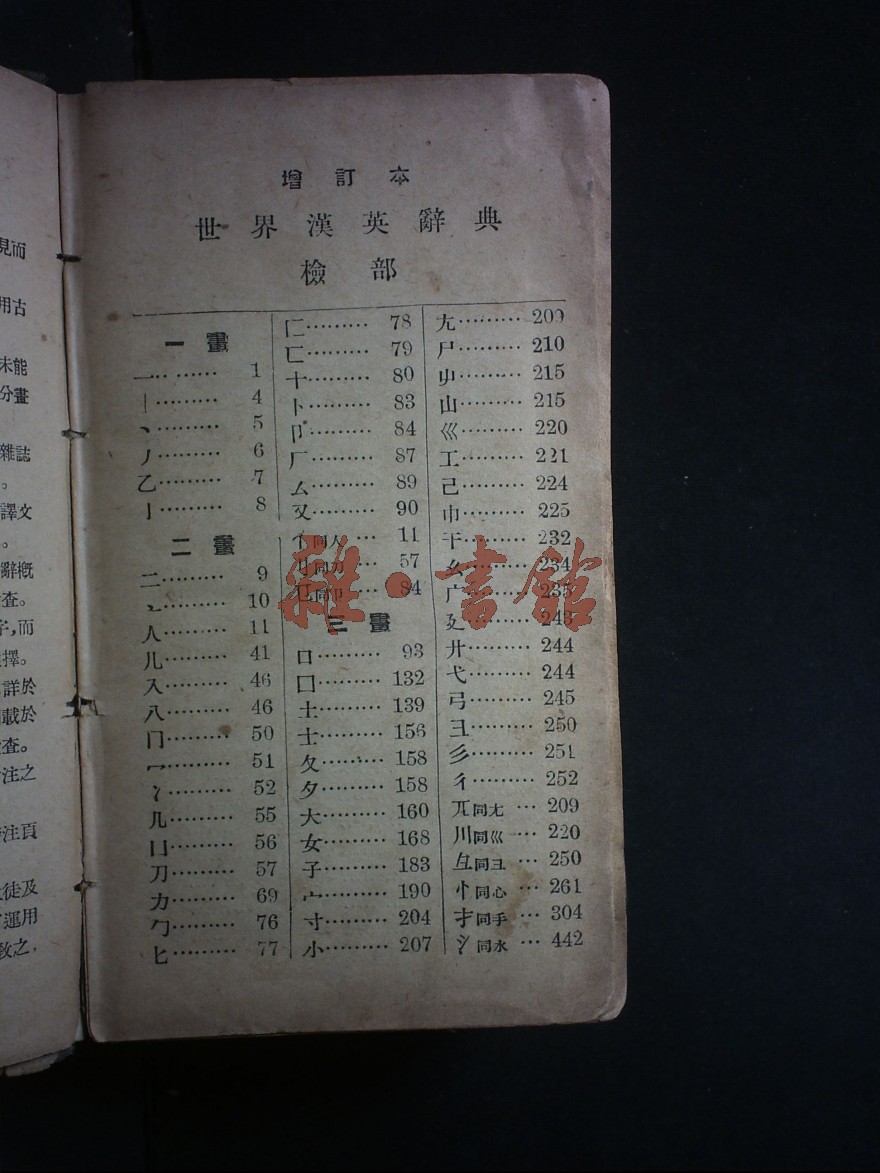 見而
用古
未能
分畫
雜誌
。
譯文
。
辭概
查。
字,而
擇。
詳於
載於
查。
注之
注頁
徒及
運用
教之.
增訂本
世界漢英辭典
檢部
一畫
一………1
丨………4
丶………5
丿………6
乙………7
亅………8
二畫
二………9
亠………10
人………11
儿………41
入………46
八………46
冂………50
冖………51
冫………52
几………55
凵………56
刀………57
力………69
勹………76
匕………77
匚………78
匸………79
十………80
卜………83
卩………84
厂………87
厶………89
又………90
亻同人…11
刂同刀…57
㔾同卩…84
三畫
口………93
囗………132
土………139
士………156
夂………158
夕………158
大………160
女………168
子………183
宀………190
寸………204
小………207
尢………209
尸………210
屮………215
山………215
巛………220
工………221
己………224
巾………225
干………232
幺………234
广………235
廴………243
廾………244
弋………244
弓………245
彐………250
彡………251
彳………252
兀同尢…209
川同巛…220
彑同彐…250
忄同心…261
扌同手…304
氵同水…442
雜·書館